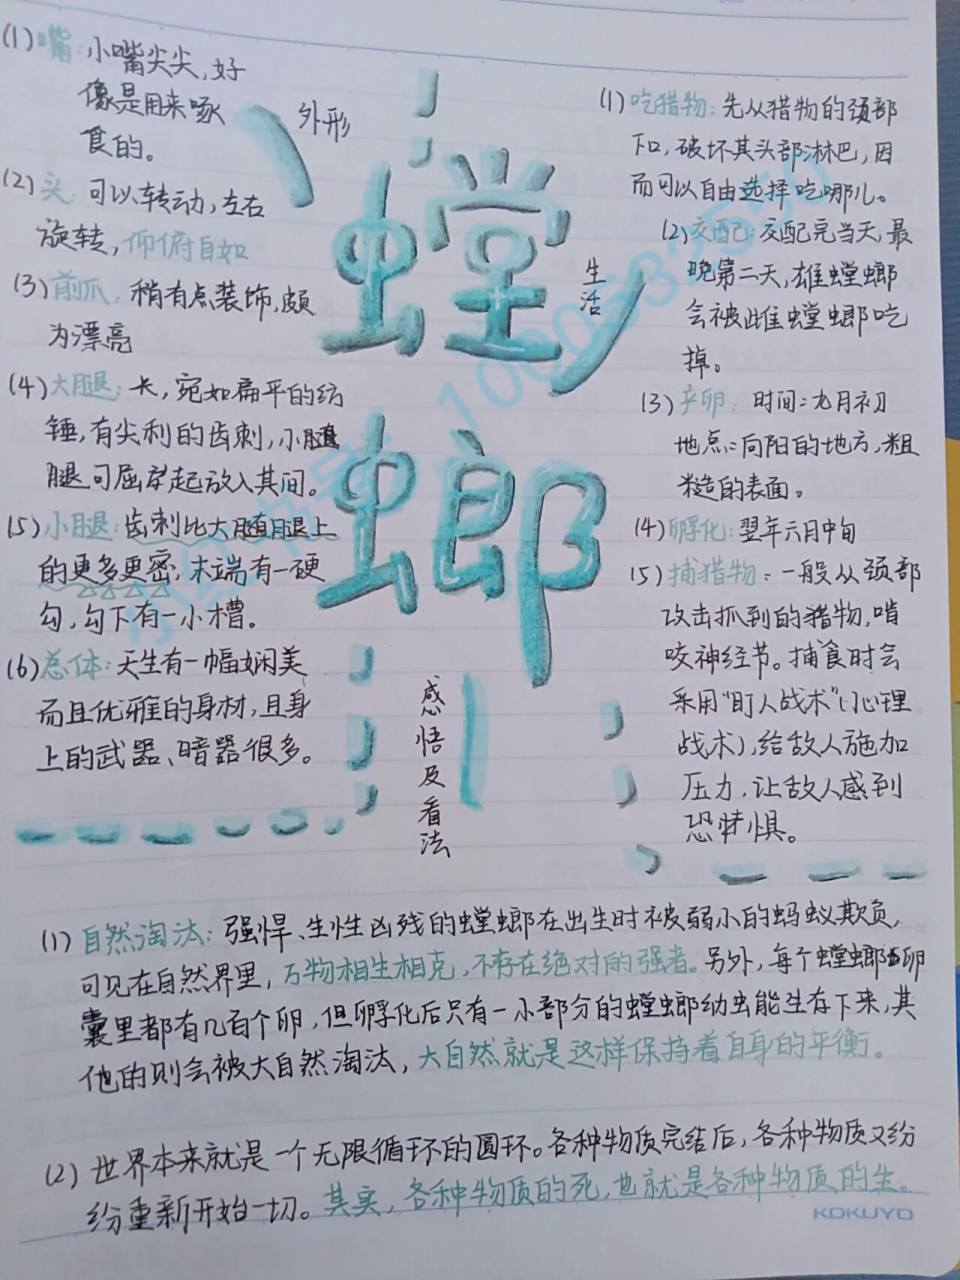 外形
(1)嘴:小嘴尖尖,好
像是用来啄
食的。
(2)头:可以转动,左右
旋转,仰俯自如
(3)前爪:稍有点装饰,颇
为漂亮
(4)大腿:长,宛如扁平的纺
锤,有尖利的齿刺,小腿
腿可屈折起放入其间。
(5)小腿:齿刺比大腿上
的更多更密,末端有一硬
勾,勾下有一小槽。
(6)总体:天生有一幅娴美
而且优雅的身材,且身
上的武器、暗器很多。
螳
螂
生活
(1)吃猎物:先从猎物的颈部
下口,破坏其头部淋巴,因
而可以自由选择吃哪儿。
(2)交配:交配完当天,最
晚第二天,雄螳螂
会被雌螳螂吃
掉。
(3)产卵:时间:九月初
地点:向阳的地方,粗
糙的表面。
(4)孵化:翌年六月中旬
(5)捕猎物:一般从颈部
攻击抓到的猎物,啃
咬神经节。捕食时会
采用"盯人战术"(心理
战术),给敌人施加
压力,让敌人感到
恐惧。
感悟及看法
(1)自然淘汰:强悍、生性凶残的螳螂在出生时被弱小的蚂蚁欺负,
可见在自然界里,万物相生相克,不存在绝对的强者。另外,每个螳螂卵
囊里都有几百个卵,但孵化后只有一小部分的螳螂幼虫能生存下来,其
他的则会被大自然淘汰,大自然就是这样保持着自身的平衡。
(2)世界本来就是一个无限循环的圆环。各种物质完结后,各种物质又纷
纷重新开始一切。其实,各种物质的死,也就是各种物质的生。
KOKUYO